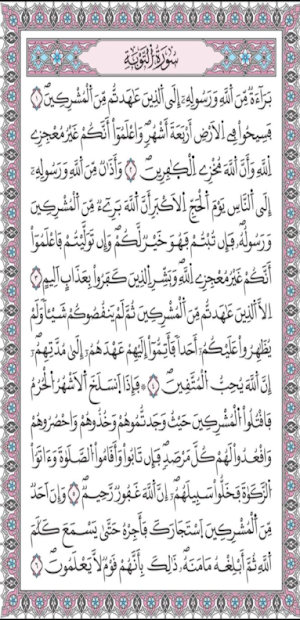 سُورَةُ التَّوْبَةِ
بَرَآءَةٌ مِّنَ اَللَّهِ وَرَسُولِهِۦٓ إِلَى اَلذِينَ عَٰهَدتُّم مِّنَ اَلْمُشْرِكِينَۖ ١
فَسِيحُواْ فِے اِلَارْضِ أَرْبَعَةَ أَشْهُرٖ وَاعْلَمُوٓاْ أَنَّكُمْ غَيْرُ مُعْجِزِے
اِللَّهِ وَأَنَّ اَللَّهَ مُخْزِے اِلْكٰ۪فِرِينَۖ ٢ وَأَذَٰنٞ مِّنَ اَللَّهِ وَرَسُولِهِۦٓ
إِلَى اَلنَّاسِ يَوْمَ اَلْحَجِّ اِلَاكْبَرِ أَنَّ اَللَّهَ بَرِےٓءٞ مِّنَ اَلْمُشْرِكِينَ
وَرَسُولُهُۥۖ فَإِن تُبْتُمْ فَهُوَ خَيْرٞ لَّكُمْۖ وَإِن تَوَلَّيْتُمْ فَاعْلَمُوٓاْ
أَنَّكُمْ غَيْرُ مُعْجِزِے اِللَّهِۖ وَبَشِّرِ اِلذِينَ كَفَرُواْ بِعَذَابٍ اَلِيمٍ ٣
اِلَّا اَلذِينَ عَٰهَدتُّم مِّنَ اَلْمُشْرِكِينَ ثُمَّ لَمْ يَنقُصُوكُمْ شَيْـٔاٗ وَلَمْ
يُظَٰهِرُواْ عَلَيْكُمُۥٓ أَحَداٗ فَأَتِمُّوٓاْ إِلَيْهِمْ عَهْدَهُمُۥٓ إِلَىٰ مُدَّتِهِمُۥٓۖ
إِنَّ اَللَّهَ يُحِبُّ اُلْمُتَّقِينَۖ ٤ ۞ فَإِذَا اَنسَلَخَ اَلَاشْهُرُ اُلْحُرُمُ
فَاقْتُلُواْ اُلْمُشْرِكِينَ حَيْثُ وَجَدتُّمُوهُمْ وَخُذُوهُمْ وَاحْصُرُوهُمْ
وَاقْعُدُواْ لَهُمْ كُلَّ مَرْصَدٖۖ فَإِن تَابُواْ وَأَقَامُواْ اُلصَّلَوٰةَ وَءَاتَوُاْ
اُلزَّكَوٰةَ فَخَلُّواْ سَبِيلَهُمُۥٓۖ إِنَّ اَللَّهَ غَفُورٞ رَّحِيمٞۖ ٥ وَإِنَ اَحَدٞ
مِّنَ اَلْمُشْرِكِينَ اَسْتَجَارَكَ فَأَجِرْهُ حَتَّىٰ يَسْمَعَ كَلَٰمَ
اَللَّهِ ثُمَّ أَبْلِغْهُ مَأْمَنَهُۥۖ ذَٰلِكَ بِأَنَّهُمْ قَوْمٞ لَّا يَعْلَمُونَۖ ٦